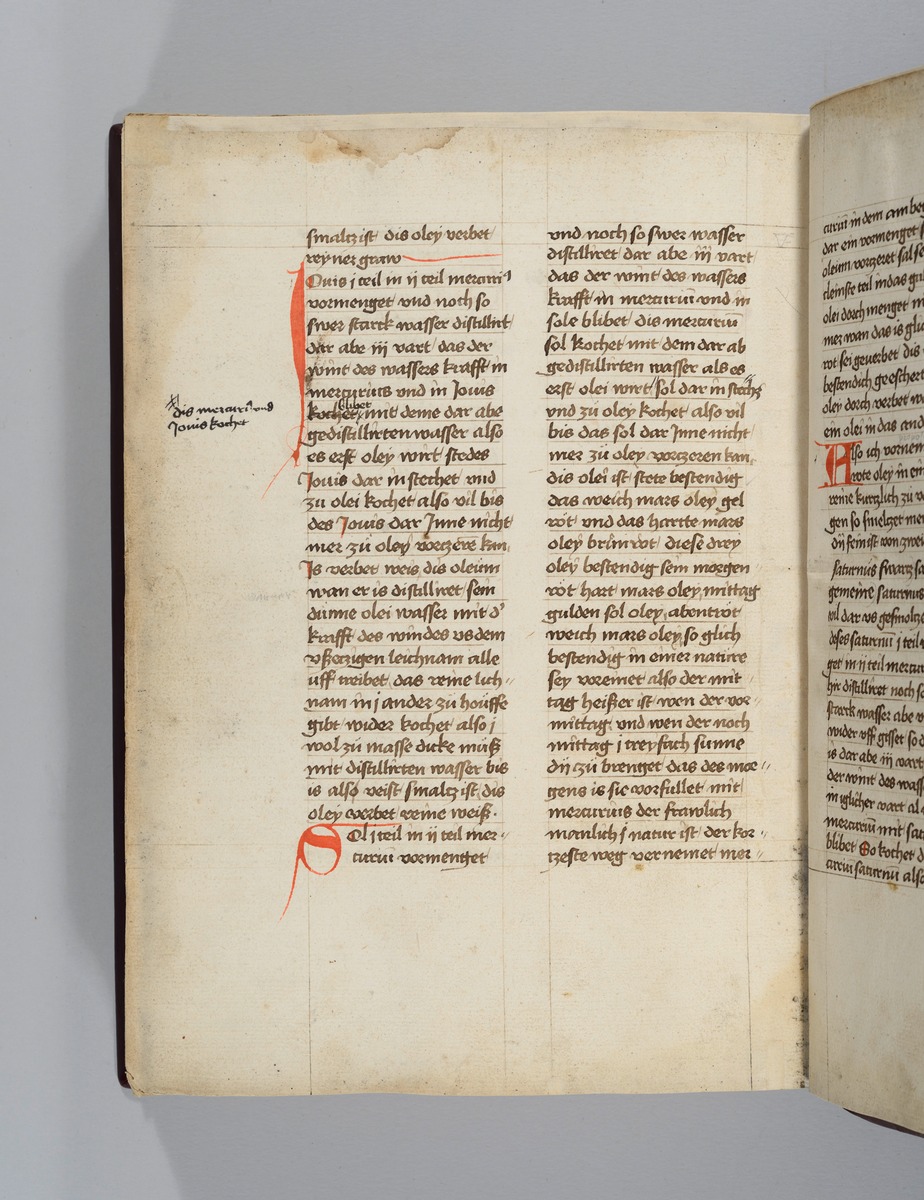 smaltz ist dis oley verbet
reyner graw
Jouis j teil in ij teil mercuriꝰ
vormenget vnd noch so
swer starck wasser distillirt
dar abe iij vart das der
wint des wassers krafft in
mercurius vnd in Jouis
blibet
kochet mit deme dar abe
gedistillirten wasser also
dis mercuriꝰ vnd
Jouis kochet
es erst oley wirt stedes
Jouis dar in stechet vnd
zu olei kochet also vil bis
des Jouis dar Jnne nicht
mer zu oley vorczere kan
Js verbet weis dis oleum
wan er is distilliret sein
dunne olei wasser mit d'
krafft des windes vs dem
vßerzigen leichnam alle
uff treibet das reine lich
nam in j ander zu houffe
gibt wider kochet also j
wol zu masse dicke muß
mit distillirten wasser bis
is also veist smaltz ist dis
oley verbet reine weiß.
Sol j teil in ij teil mer
curium vormenget
und noch so swer wasser
distilliret dar abe iij vart
das der wint des wassers
krafft in mercuriū vnd in
sole blibet dis mercuriū
sol kochet mit dem dar ab
gedistillirten wasser als es
erst olei wirt sol dar in stechꝫ
vnd zu oley kochet also vil
bis das sol dar Jnne nicht
mer zu oley vorczeren kan
dis olei ist stete bestendig
das weich mars oley gel
rot vnd das hartte mars
oley brunrot diese drey
oley bestendig sein morgen
rot hart mars oley mittag
gulden sol oley abentrot
weich mars oley so glich
bestendig in einer nature
sey voreinet also der mit
tag heißer ist wen der vor
mittag vnd wen der noch
mittag j treyfach sunne
dy zu brenget das des mor
gens is sie vorfullet mit
mercurius der frawlich
manlich j natur ist der kor
tzeste weg vernemet mer
curiū in dem
dar ein vormenget
oleum vorczeret sal
cleinste teil in das
olei dorch menget
mer wan das is
rot sei geuerbet dis
bestendich
oley dorch verbet
ein olei in das and
Also ich vornem
rote oley in
reine kurtzlich zu
gen so smeltzet
dy sein ist von zwei
saturnus swartz
gemeine saturnus
vil dar vs gesmoltze
doses saturnū j teil
get in ij teil mercur
distilliret noch
starck wasser abe
wider vff gisset so
is dar abe iij vart
der wint des wass
in glicher vart al
mercuriū mit sat
blibet So kochet
curiū saturnū also